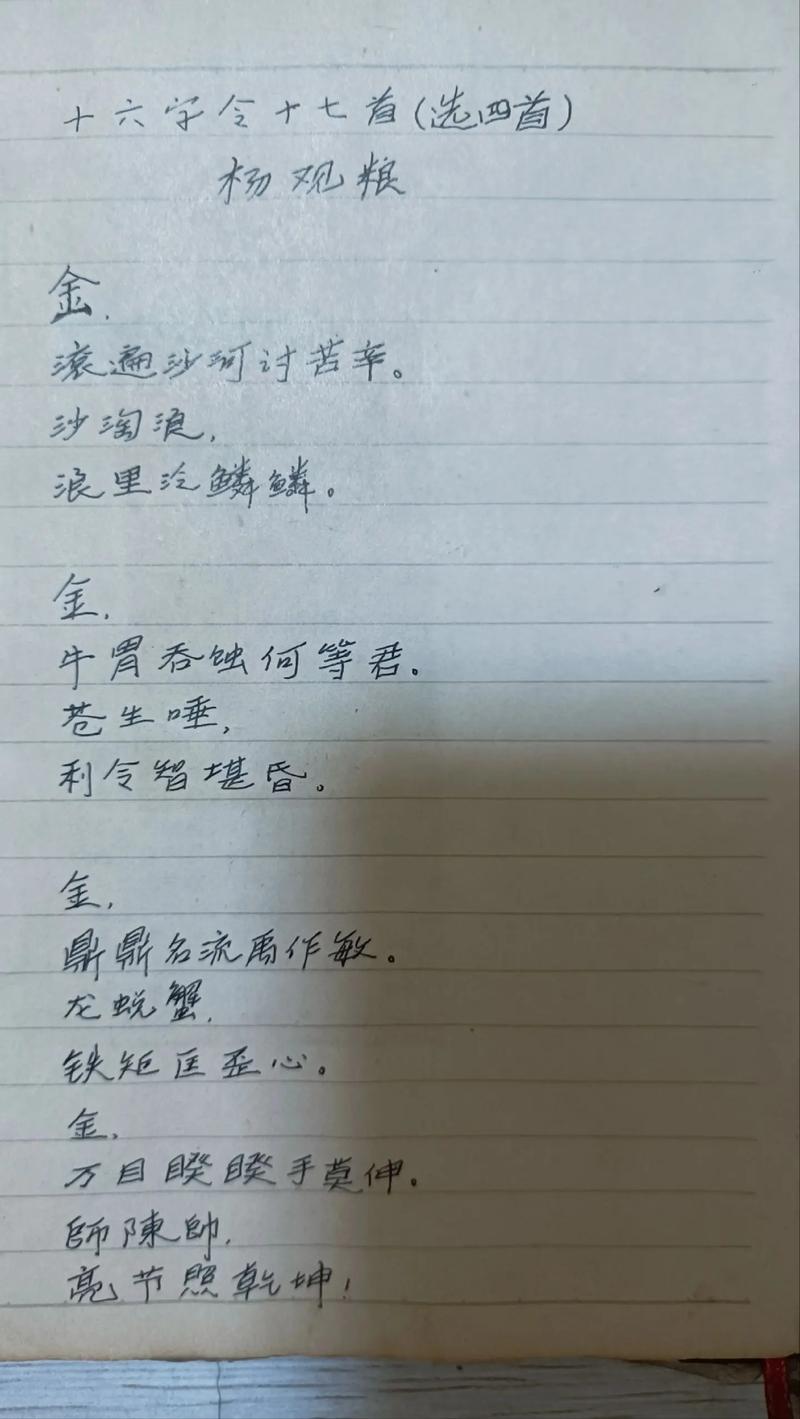 十六字令十七首(选四首)
杨观粮
金,
滚遍沙河讨苦辛。
沙淘浪,
浪里泠鳞鳞。
金,
牛胃吞蚀何等君。
苍生唾,
利令智堪昏。
金,
鼎鼎名流禹作敏。
龙蜕蟹,
铁矩匡歪心。
金,
万目睽睽手莫伸。
師陳帥,
亮节照乾坤!